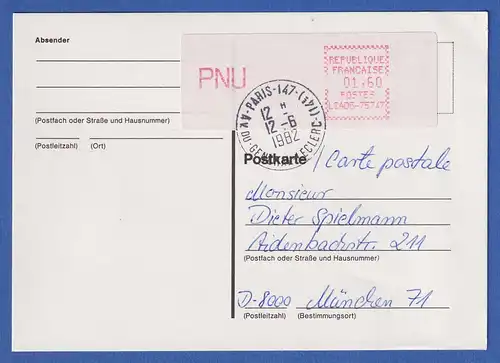 Absender
PNU
REPUBLIQUE
FRANCAISE
01,60
POSTES
PARIS-147-(141)
12 H
12-6
1982
AV. DU GENERAL LECLERC
(Postfach oder Straße und Hausnummer)
(Postleitzahl) (Ort)
Postkarte / Carte postale
Monsieur
Dieter Spielmann
Aidenbachstr. 211
(Postfach oder Straße und Hausnummer)
D-8000 München 71
(Postleitzahl) (Bestimmungsort)